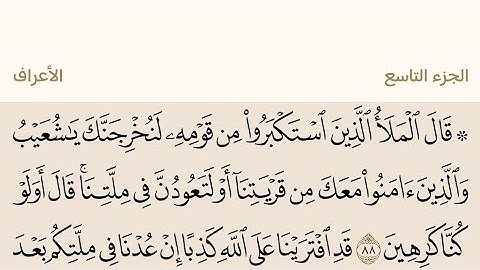 الجزء التاسع
الأعراف
۞ قَالَ ٱلۡمَلَأُ ٱلَّذِينَ ٱسۡتَكۡبَرُواْ مِن قَوۡمِهِۦ لَنُخۡرِجَنَّكَ يَٰشُعَيۡبُ
وَٱلَّذِينَ ءَامَنُواْ مَعَكَ مِن قَرۡيَتِنَآ أَوۡ لَتَعُودُنَّ فِي مِلَّتِنَاۚ قَالَ أَوَلَوۡ
كُنَّا كَٰرِهِينَ ٨٨ قَدِ ٱفۡتَرَيۡنَا عَلَى ٱللَّهِ كَذِبًا إِنۡ عُدۡنَا فِي مِلَّتِكُم بَعۡدَ